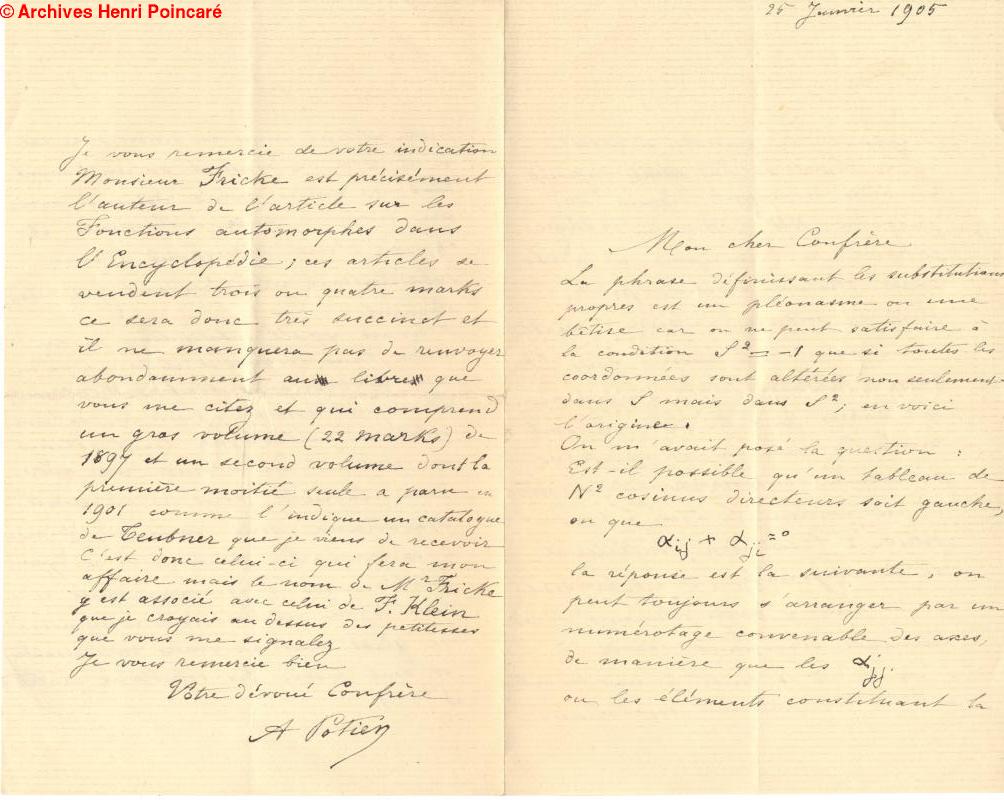 © Archives Henri Poincaré
25 Janvier 1905
Mon cher Confrère
La phrase définissant les substitutions
propres est un pléonasme ou une
bêtise car on ne peut satisfaire à
la condition S² = -1 que si toutes les
coordonnées sont altérées non seulement
dans S mais dans S²; en voici
l'origine.
On m'avait posé la question :
Est-il possible qu'un tableau de
N² cosinus directeurs soit gauche,
ou que
αij + αji = 0
la réponse est la suivante, on
peut toujours s'arranger par un
numérotage convenable des axes,
de manière que les αjj
ou les éléments constituant la
Je vous remercie de votre indication
Monsieur Fricke est précisément
l'auteur de l'article sur les
Fonctions automorphes dans
l'Encyclopédie; ces articles se
vendent trois ou quatre marks
ce sera donc très succinct et
il ne manquera pas de renvoyer
abondamment au livre que
vous me citez et qui comprend
un gros volume (22 marks) de
1897 et un second volume dont la
première moitié seule a paru en
1901 comme l'indique un catalogue
de Teubner que je viens de recevoir
C'est donc celui-ci qui fera mon
affaire mais le nom de Mr Fricke
y est associé avec celui de F. Klein
que je croyais au dessus des petitesses
que vous me signalez
Je vous remercie bien
Votre dévoué Confrère
A Potier